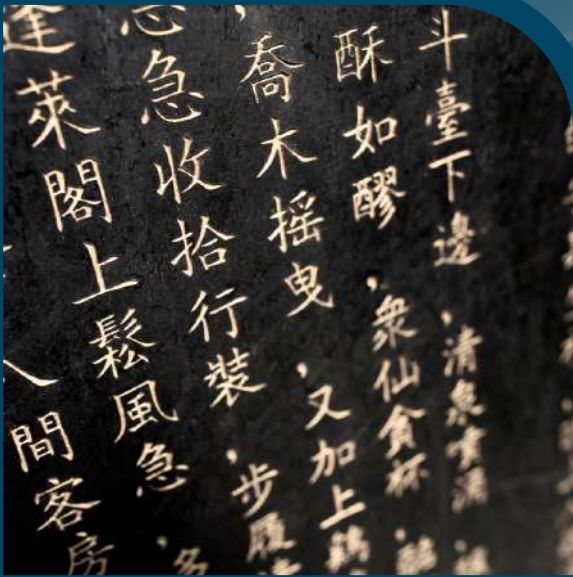 斗臺下邊，清泉噴涌，
酥如醪，衆仙貪杯，
，喬木摇曳，又加上
急收拾行裝，步履
蓬萊閣上鬆風急，多
間客房